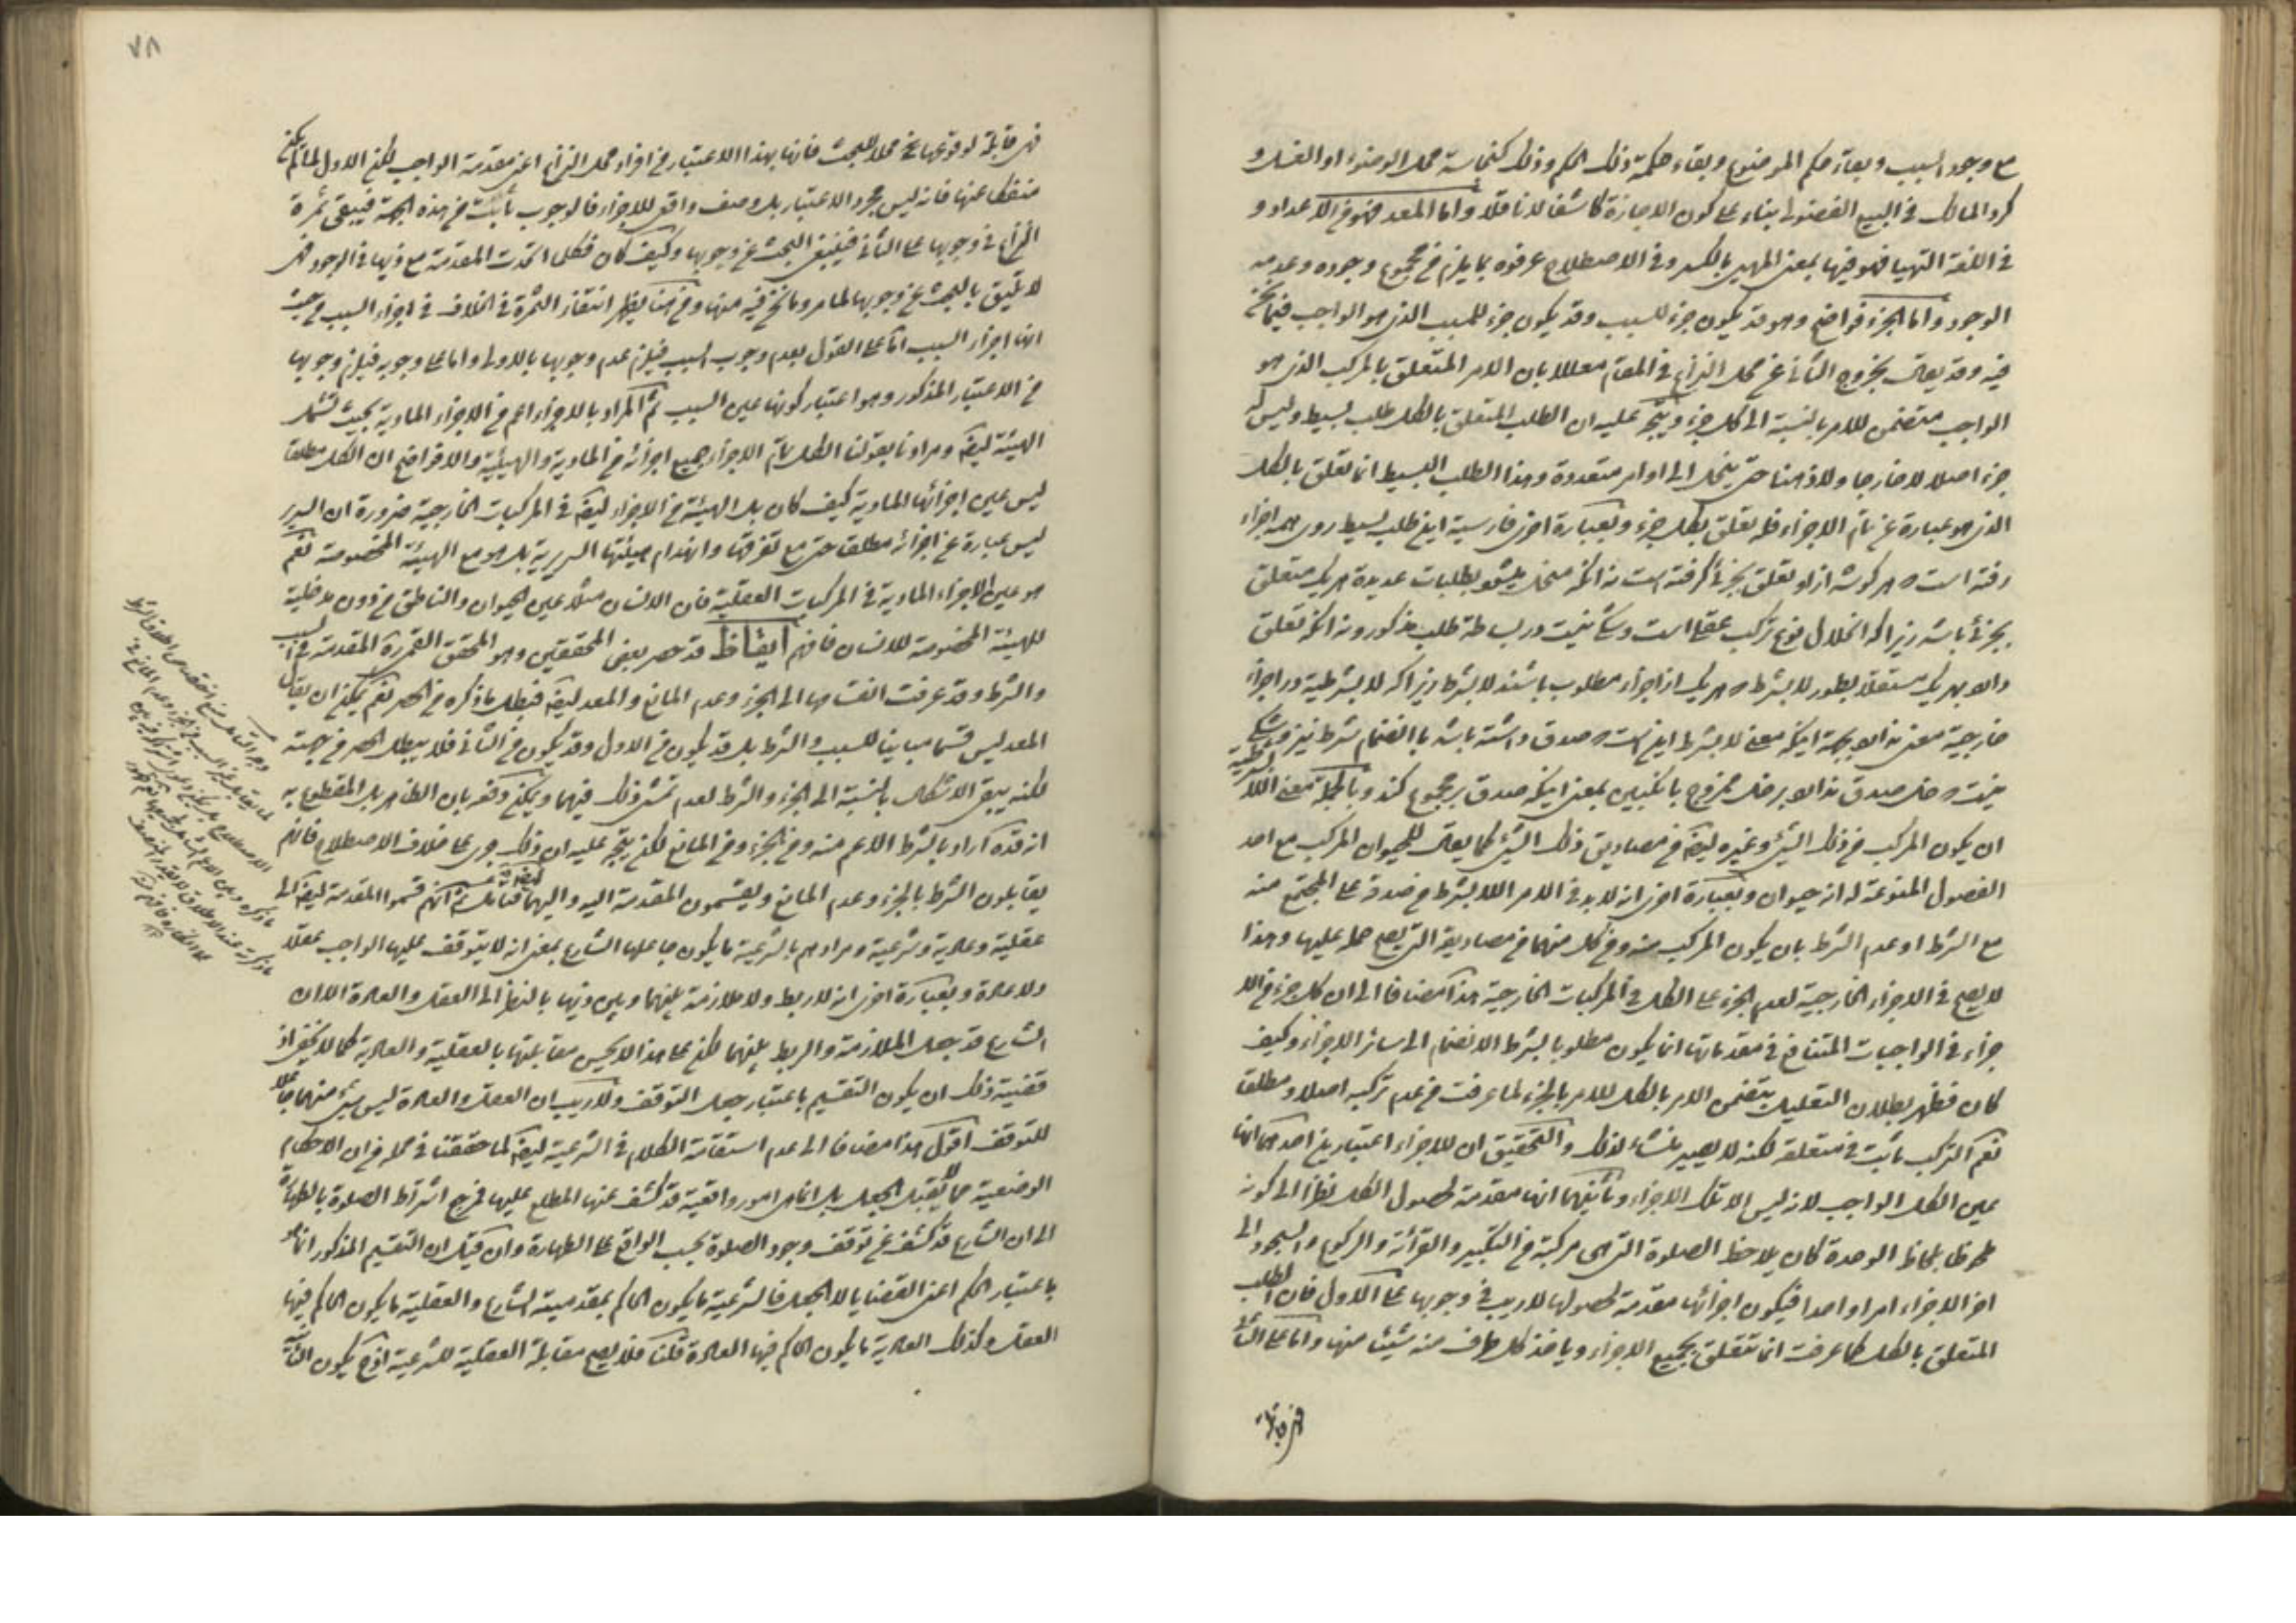 مع وجود السبب وبقاء حكم الموضوع وبقاء حكمة ذلك الحكم وذلك كنجاسة محل الوضوء او الغسل و
كرد المالك في البيع الفضولي بناء على كون الاجازة كاشفا لا ناقلا واما المعد فهو من الاعداد و
في اللغة التهيا فهو فيها بمعنى المهيئ بالكسر وفي الاصطلاح عرفوه بما يلزم من مجموع وجوده وعدمه
الوجود واما الجزء فواضح وهو قد يكون جزء للسبب وقد يكون جزء للمسبب الذي هو الواجب فيما نحن
فيه وقد يقال بخروج الثاني عن محل النزاع في المقام معللا بان الامر المتعلق بالمركب الذي هو
الواجب متضمن للامر بالنسبة الى كل جزء ويتجه عليه ان الطلب المتعلق بالكل طلب بسيط وليس له
جزء اصلا لا خارجا ولا ذهنا حتى ينحل الى اوامر متعددة وهذا الطلب البسيط انما تعلق بالكل
الذي هو عبارة عن تمام الاجزاء فله تعلق بكل جزء وبعبارة اخرى فارسية اين طلب بسيط روى همه اجزاء
رفته است و هر كوشه از او تعلق بجزئى كرفته است نه انكه منحل ميشود بطلبات عديده هر يك متعلق
بجزئى باشد زيرا كه انحلال فرع تركب عقلى است وشكى نيست در بساطة طلب مذكور ونه انكه تعلق
او بهر يك مستقلا بطور لا بشرط و هر يك از اجزاء مطلوب باشند لا بشرط زيرا كه لا بشرطية در اجزاء
خارجية معنى ندارد بجهة اينكه معنى لا بشرط اين است كه صدق داشته باشد با انضمام شرط نيز وشكى
نيست كه خل صدق ندارد بر خل ممزوج بانكبين بمعنى اينكه صدق بر مجموع كند وبالجملة معنى اللا بشرطية
ان يكون المركب من ذلك الشيء وغيره ايضا من مصاديق ذلك الشيء كما يقال للحيوان المركب مع احد
الفصول المنوعة له انه حيوان وبعبارة اخرى انه لا بد في الامر اللا بشرط من صدقه على المجتمع منه
مع الشرط او عدم الشرط بان يكون المركب منه ومن كل منهما من مصاديقه التي يصح حمله عليها وهذا
لا يصح في الاجزاء الخارجية لعدم حمل الجزء على الكل في المركبات الخارجية هذا مضافا الى ان كل جزء من الا
جزاء في الواجبات المتنازع في مقدماتها انما يكون مطلوبا بشرط الانضمام الى سائر الاجزاء وكيف
كان فظهر بطلان التعليل بتضمن الامر بالكل للامر بالجزء لما عرفت من عدم تركبه اصلا ومطلقا
نعم التركب ثابت في متعلقه لكنه لا يصير منشاء لذلك والتحقيق ان للاجزاء اعتبارين احدهما انها
عين الكل الواجب لانه ليس الا تلك الاجزاء وثانيهما انها مقدمة لحصول الكل نظرا الى كونه
ملحوظا بلحاظ الوحدة كان يلاحظ الصلوة التي هي مركبة من التكبير والقرائة والركوع والسجود الى
اخر الاجزاء امرا واحدا فيكون اجزائها مقدمة لحصولها لا ريب في وجوبها على الاول فان الطلب
المتعلق بالكل كما عرفت انما تعلق بجميع الاجزاء وياخذ كل طرف منه شيئا منها واما على الثاني
فهي قابلة
٧٨
فهي قابلة لوقوعها محلا للبحث فانها بهذا الاعتبار من افراد محل النزاع اعني مقدمة الواجب لكن الاول لما لم يكن
منفكا عنها فانه ليس مجرد الاعتبار بل وصف واقعي للاجزاء فالوجوب ثابت من هذه الجهة فيبقى ثمرة
النزاع في وجوبها على الثاني فينبغي البحث عن وجوبها وكيف كان فكلما اتحدت المقدمة مع ذيها في الوجود فهي
لا تليق بالبحث عن وجوبها لما مر وما نحن فيه منها ومن هنا يظهر انتفاء الثمرة في الخلاف في اجزاء السبب من حيث
انها اجزاء السبب اما على القول بعدم وجوب السبب فيلزم عدم وجوبها بالاولى واما على وجوبه فيلزم وجوبها
من الاعتبار المذكور وهو اعتبار كونها عين السبب ثم المراد بالاجزاء اعم من الاجزاء المادية بحيث تشمل
الهيئة ايضا ومرادنا بقولنا الكل تمام الاجزاء جميع اجزائه من المادية والهيئية والا فواضح ان الكل مطلقا
ليس عين اجزائها المادية كيف كان بل الهيئة من الاجزاء ايضا في المركبات الخارجية ضرورة ان السرير
ليس عبارة عن اجزائه مطلقا حتى مع تفرقها وانهدام هيئتها السريرية بل هو مع الهيئة المخصوصة نعم
هو عين الاجزاء المادية في المركبات العقلية فان الانسان مثلا عين الحيوان والناطق من دون مدخلية
للهيئة المخصوصة للانسان فافهم ايقاظ قد حصر بعض المحققين وهو المحقق القمي ره المقدمة في السبب
والشرط وقد عرفت انقسامها الى الجزء وعدم المانع والمعد ايضا فيبطل ما ذكره من الحصر نعم يمكن ان يقال
المعد ليس قسما مباينا للسبب والشرط بل قد يكون من الاول وقد يكون من الثاني فلا يبطل الحصر من جهته
لكنه يبقى الاشكال بالنسبة الى الجزء والشرط لعدم تمشي ذلك فيهما ويمكن دفعه بان الظاهر بل المقطوع به
انه قده اراد بالشرط الاعم منه ومن الجزء ومن المانع لكن يتجه عليه ان ذلك جرى على خلاف الاصطلاح فانهم
يقابلون الشرط بالجزء وعدم المانع ويقسمون المقدمة اليه واليهما فتامل ثم انهم قسموا المقدمة ايضا الى
عقلية وعادية وشرعية ومرادهم بالشرعية ما يكون جاعلها الشارع بمعنى انه لا يتوقف عليها الواجب عقلا
ولا عادة وبعبارة اخرى انه لا ربط ولا ملازمة بينهما وبين ذيها بالنظر الى العقل والعادة الا ان
الشارع قد جعل الملازمة والربط بينهما لكن على هذا لا يحسن مقابلتها بالعقلية والعادية كما لا يخفى اذ
قضية ذلك ان يكون التقسيم باعتبار جعل التوقف ولا ريب ان العقل والعادة ليس شيء منهما جاعلا
للتوقف اقول هذا مضافا الى عدم استقامة الكلام في الشرعية ايضا لما حققنا في محله من ان الاحكام
الوضعية مما لا يقبل الجعل بل انما هي امور واقعية قد كشف عنها المطلع عليها فمرجع اشتراط الصلوة بالطهارة
الى ان الشارع قد كشف عن توقف وجود الصلوة بحسب الواقع على الطهارة وان قيل ان التقسيم المذكور انما هو
باعتبار الحكم اعني القضايا لا الجعل فالشرعية ما يكون الحاكم بمقدميته الشارع والعقلية ما يكون الحاكم فيها
العقل وكذلك العادية ما يكون الحاكم فيها العادة قلنا فلا يصح مقابلة العقلية للشرعية اذ ح يكون